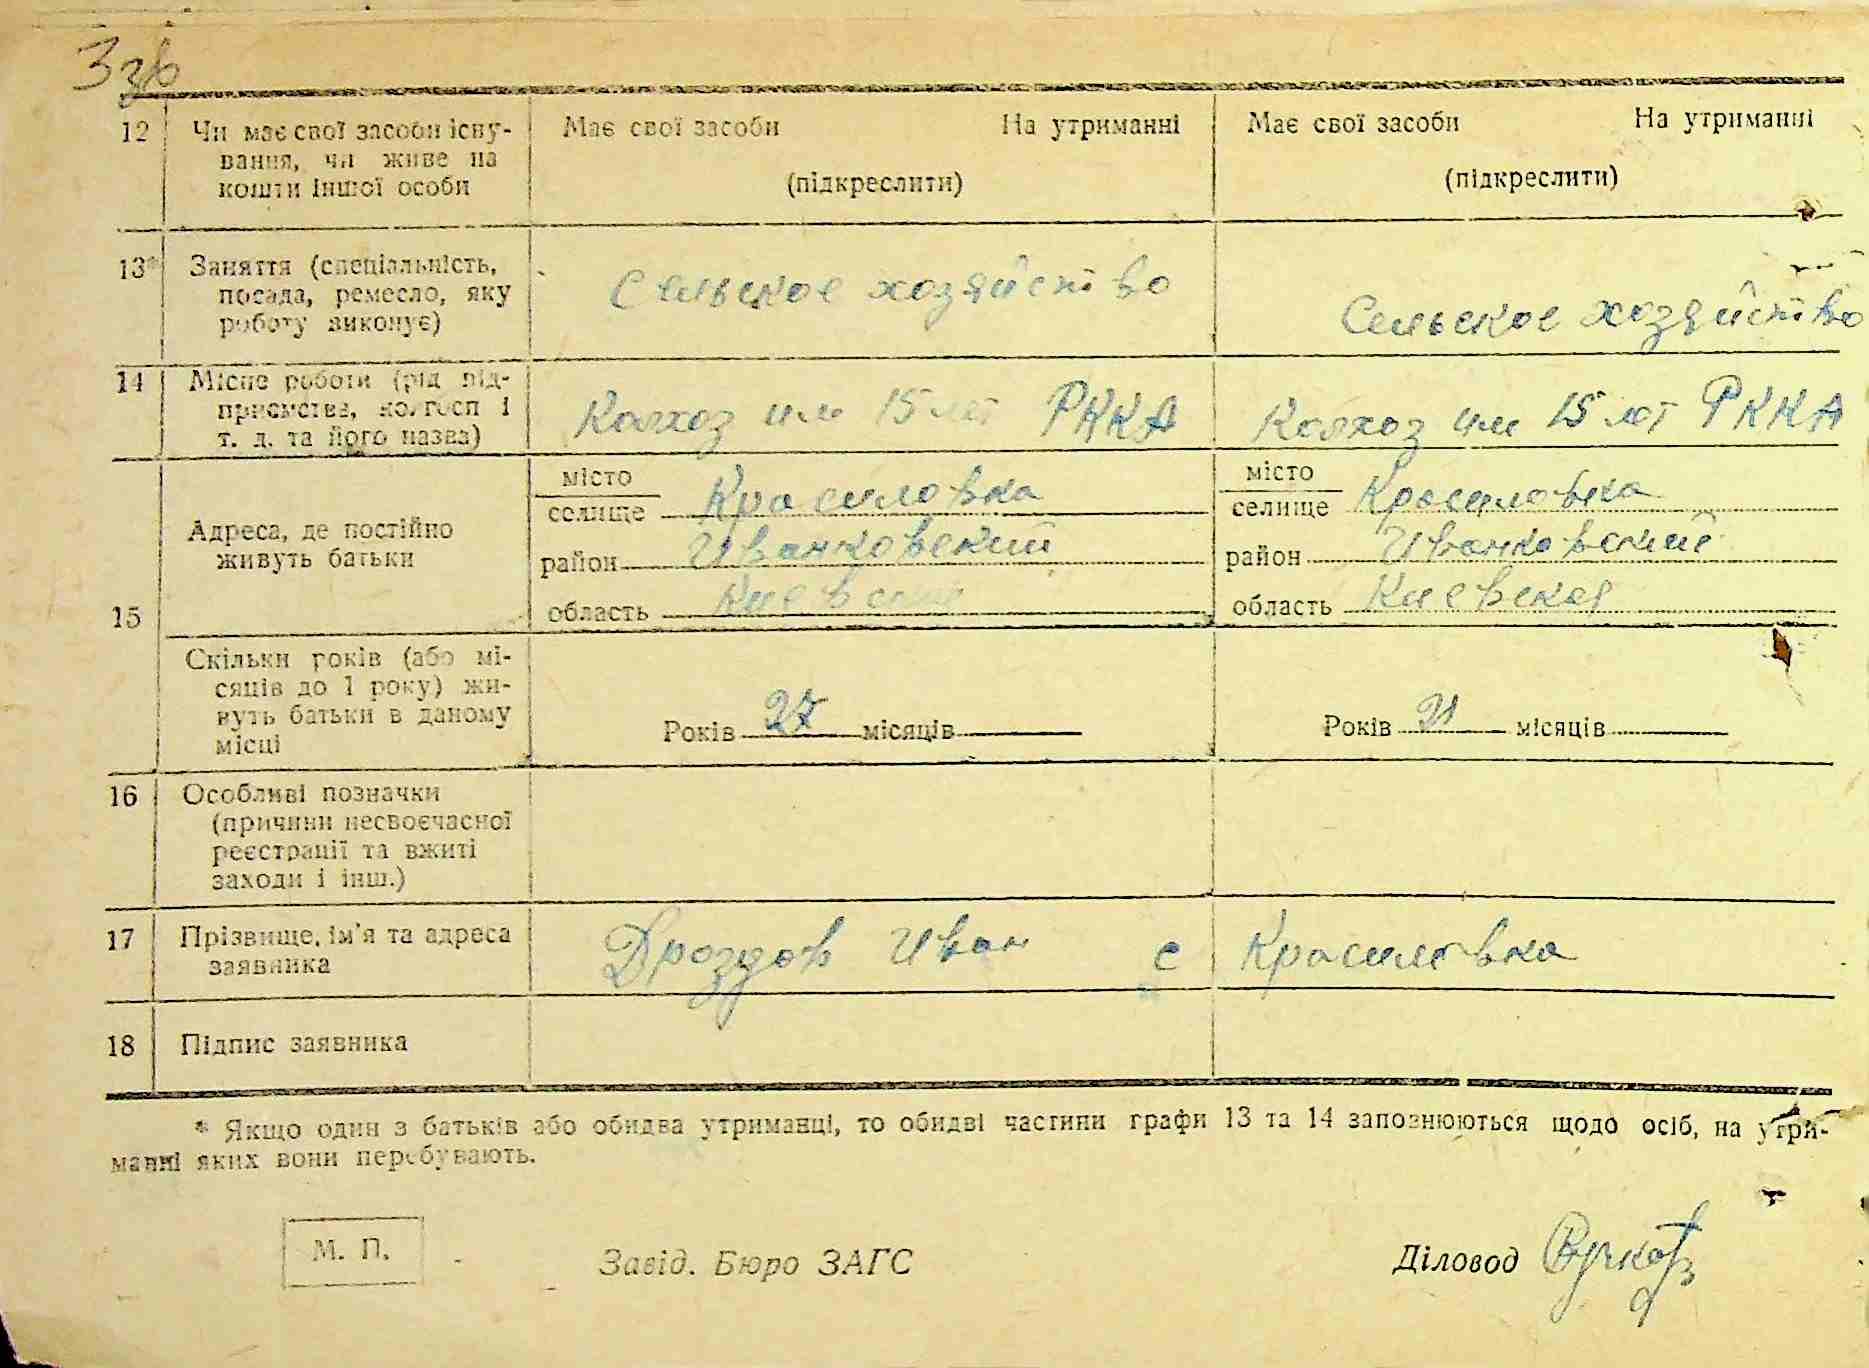 3 зв
12 Чи має свої засоби існу- Має свої засоби На утриманні Має свої засоби На утриманні
вання, чи живе на
кошти іншої особи (підкреслити) (підкреслити)
13* Заняття (спеціальність,
посада, ремесло, яку Сельское хозяйство Сельское хозяйство
роботу виконує)
14 Місце роботи (рід під-
приємства, колгосп і Колхоз им 15 лет РККА Колхоз им 15 лет РККА
т. д. та його назва)
15 Адреса, де постійно
живуть батьки
місто місто
селище Красиловка селище Красиловка
район Иванковский район Иванковский
область Киевская область Киевская
Скільки років (або мі-
сяців до 1 року) жи-
вуть батьки в даному
місці Років 27 місяців Років 21 місяців
16 Особливі позначки
(причини несвоєчасної
реєстрації та вжиті
заходи і інш.)
17 Прізвище, ім'я та адреса Дроздов Иван с Красиловка
заявника
18 Підпис заявника
* Якщо один з батьків або обидва утриманці, то обидві частини графи 13 та 14 заповнюються щодо осіб, на утри-
манні яких вони перебувають.
М. П. Завід. Бюро ЗАГС Діловод